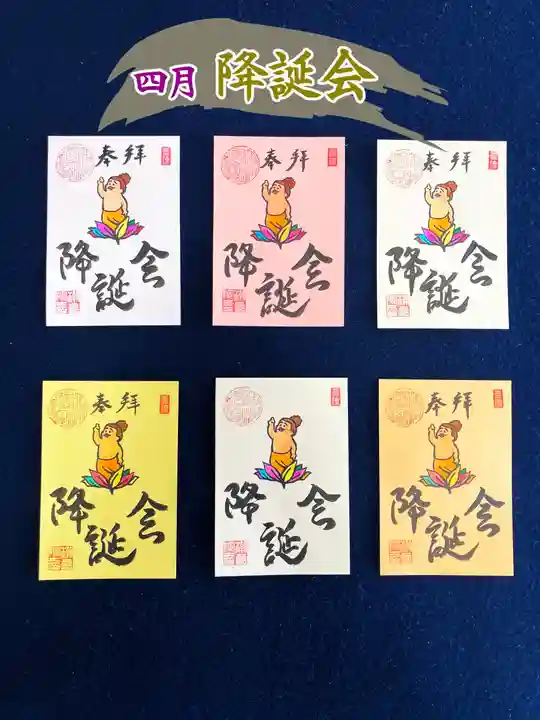 四月 降誕会
奉拝
降誕会
奉拝
降誕会
奉拝
降誕会
奉拝
降誕会
降誕会
奉拝
降誕会